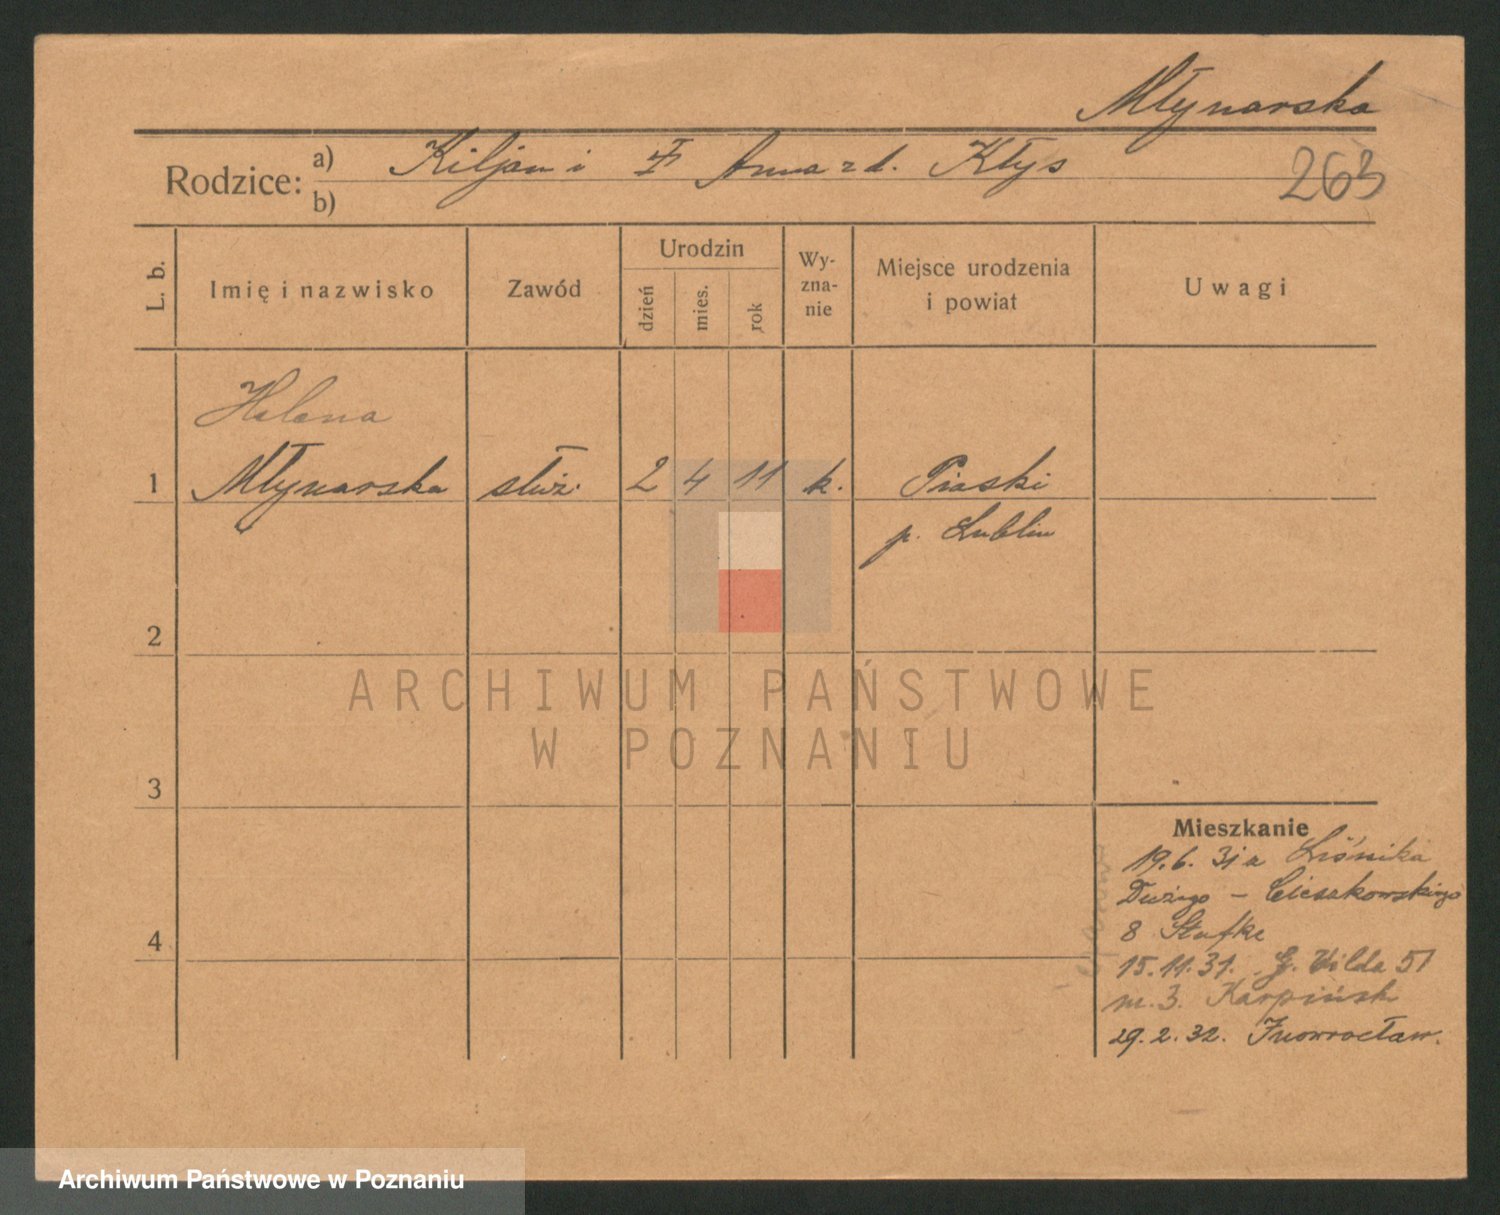 Młynarska
Rodzice: a) Kiljan i Anna z d. Kłys
b)
263
L. b. Imię i nazwisko Zawód Urodzin dzień mies. rok Wy-zna-nie Miejsce urodzenia i powiat Uwagi
Helena
1 Młynarska służ. 2 4 11 k. Piaski
p. Lublin
2
ARCHIWUM PAŃSTWOWE
W POZNANIU
3
Mieszkanie
19.6.31 z Liśnika
Dużego – Cieszkowskiego
4
8 Stufke
15.11.31. G. Wilda 51
m. 3. Karpińsk
29.2.32. Inowrocław.
Archiwum Państwowe w Poznaniu